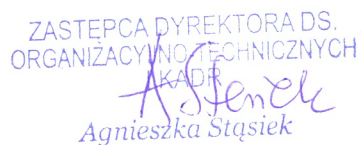 ZASTĘPCA DYREKTORA DS.
ORGANIZACYJNO-TECHNICZNYCH
I KADR
Agnieszka Stąsiek